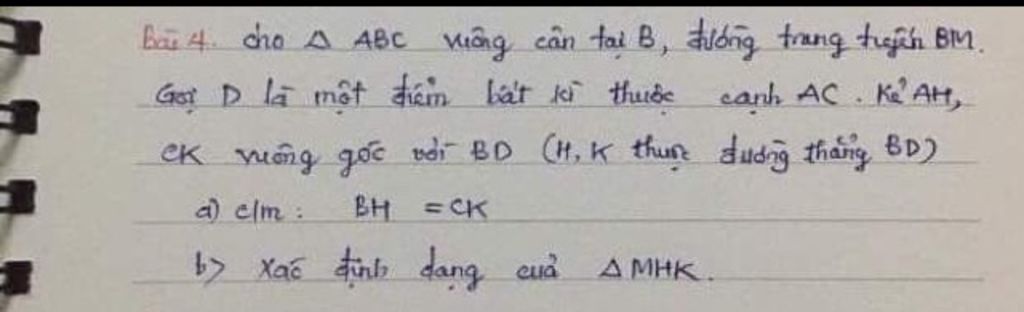 Bài 4. cho Δ ABC vuông cân tại B, đường trung tuyến BM.
Gọi D là một điểm bất kì thuộc cạnh AC. Kẻ AH,
CK vuông góc với BD (H, K thuộc đường thẳng BD)
a) c/m: BH = CK
b) Xác định dạng của Δ MHK.